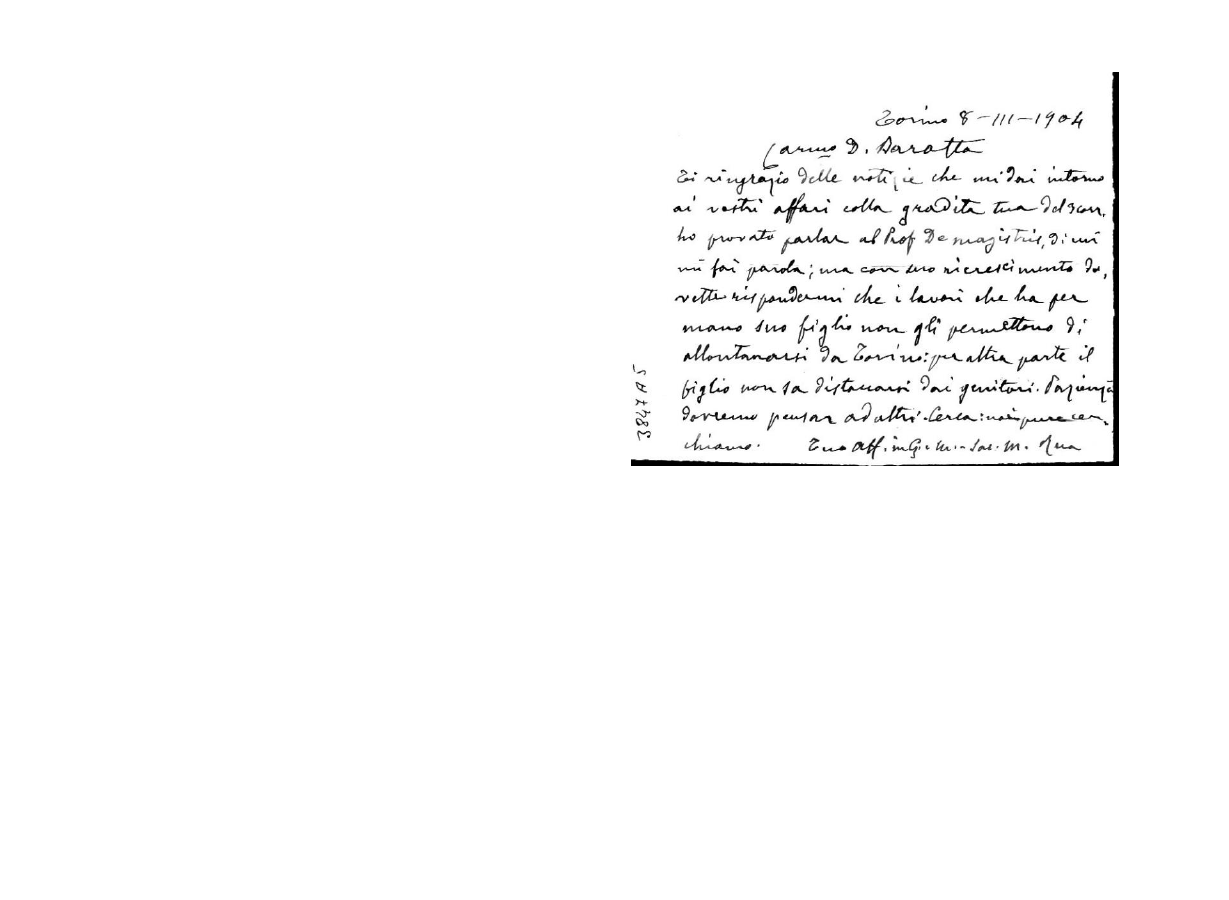 Torino 8-III-1904
Carmo D. Baratta
Ti ringrazio delle notizie che mi dai intorno
ai vostri affari colla gradita tua del scor.
ho provato parlar al Prof De magistris, di cui
mi fai parola; ma con suo ricrescimento do,
vette rispondermi che i lavori che ha per
mano suo figlio non gli permettono di
allontanarsi da Torino: per altra parte il
figlio non sa distaccarsi dai genitori. Pazienza
dovremo pensar ad altri. Cerca: noi pure cer,
chiamo. Tuo Aff. in G. e M. - Sac. M. Rua
3847A5